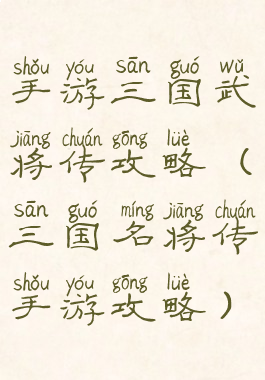 shǒu yóu sān guó wǔ
手游三国武
jiāng chuán gōng lüè
将传攻略（
sān guó míng jiāng chuán
三国名将传
shǒu yóu gōng lüè
手游攻略）